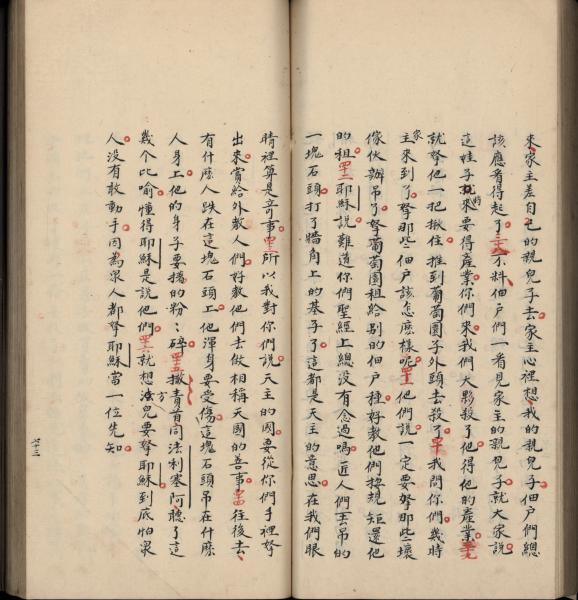 來家主差自己的親兒子去家主心裡想我的親兒子佃戶們總
該應看得起了三八不料佃戶們一看見家主的親兒子就大家說
這娃子就來時要得產業你們來我們大夥殺了他得他的產業三九
就拏他一把揪住推到葡萄園子外頭去殺了四十我問你們幾時
家主來到了拏那些佃戶該怎麽樣呢四一他們說一定要拏那些壞
傢伙辦吊了拏葡萄園租給別的佃戶種好教他們按規矩還他
的租四二耶穌說難道你們聖經上總沒有念過嗎匠人們丟吊的
一塊石頭打了牆角上的基子了這都是天主的意思在我們眼
睛裡算是奇事四三所以我對你們說天主的國要從你們手裡拏
出來賞給外教人們好教他們去做相稱天國的善事四四往後去
有什麽人跌在這塊石頭上他渾身要受傷這塊石頭吊在什麽
人身上他的身子要捲的粉粉碎四五撒責首同法利塞阿聽了這
幾個比喻懂得耶穌是說他們四六就想法方兒要拏耶穌到底怕衆
人沒有敢動手因為衆人都拏耶穌當一位先知
七十三